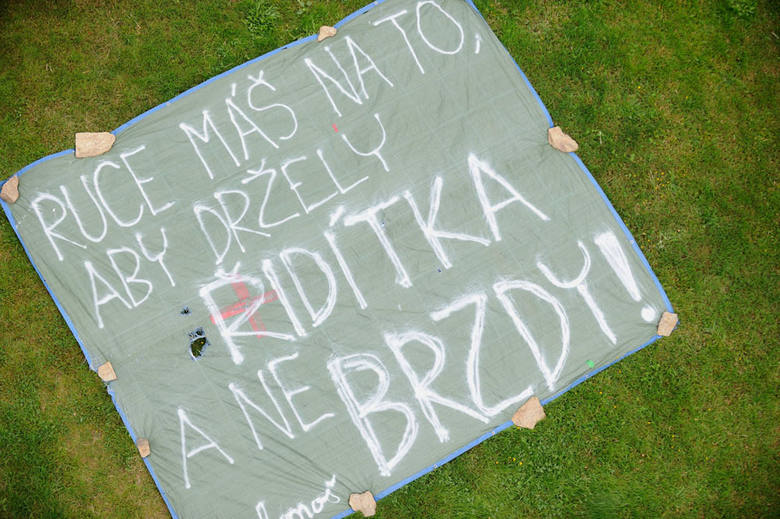 RUCE MÁŠ NA TO,
ABY DRŽELY
ŘIDÍTKA
A NE BRZDY!